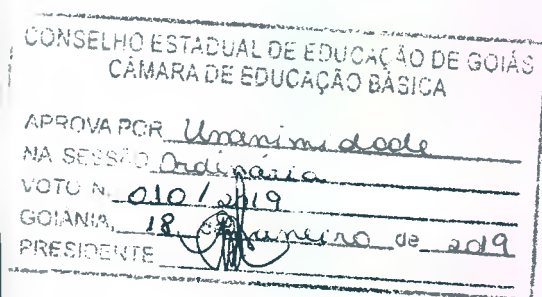 CONSELHO ESTADUAL DE EDUCAÇÃO DE GOIÁS
CÂMARA DE EDUCAÇÃO BÁSICA
APROVA POR Unanimidade
NA SESSÃO Ordinária
VOTO N. 010 / 2019
GOIÂNIA, 18 de janeiro de 2019
PRESIDENTE